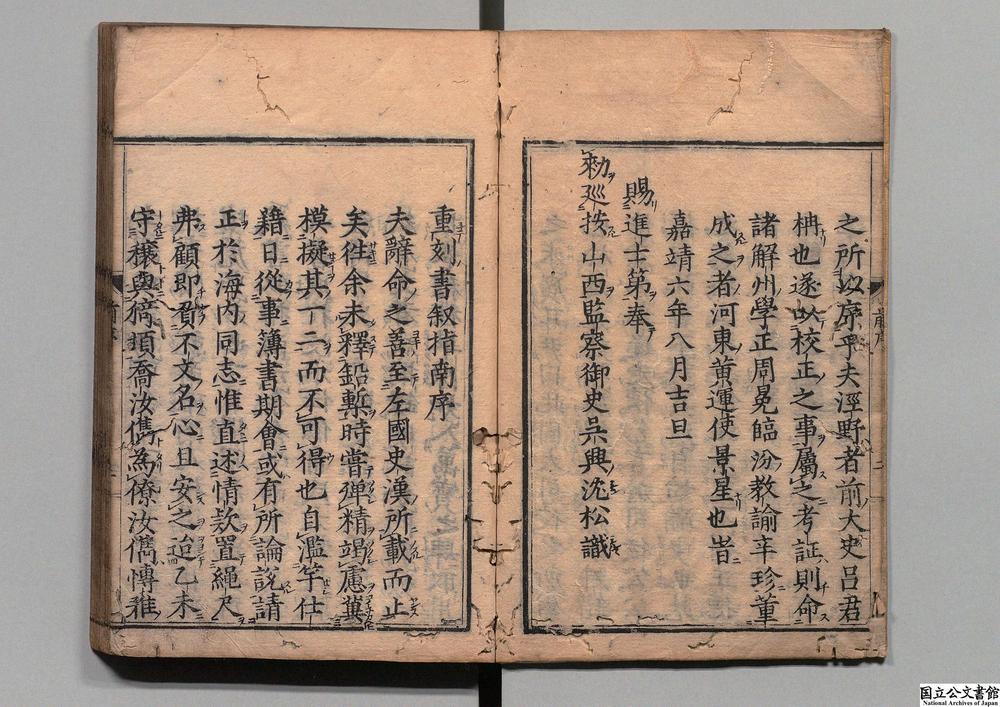 之所以序乎夫涇野者前大史呂君
柟也遂以校正之事屬之考証則命
諸解州學正周冕臨汾教諭辛珍董
成之者河東黄運使景星也旹
嘉靖六年八月吉旦
賜進士第奉
勑廵按山西監察御史吳興沈松識
重刻書叙指南序
夫辭命之善至左國史漢所載而止
矣徃余未釋鉛槧時嘗殫精竭慮冀
模擬其一二而不可得也自濫竽仕
籍日從事簿書期會或有所論說請
正於海内同志惟直述情欵置繩尺
弗顧即貽不文名心且安之迨乙未
守穰與㢐頊喬汝儁為僚汝儁愽雅
国立公文書館
National Archives of Japan